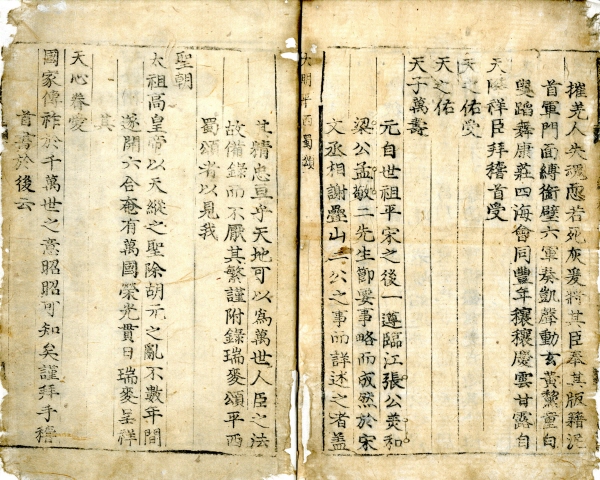 摧羌人失魂悉若死灰爰將其臣奉其版籍泥
首軍門面縛銜璧六軍奏凱聲動玄黃黧童白
叟蹈舞康莊四海會同豊年穰穰慶雲甘露自
天降祥臣拜稽首受
天之佑受
天之佑
天子萬壽
元自世祖平宋之後一遵臨江張公美和
梁公孟敬二先生節要事略而成然於宋
文丞相謝疊山二公之事而詳述之者盖
大明平西蜀頌
其精忠亘乎天地可以爲萬世人臣之法
故備錄而不厭其繁謹附錄瑞麥頌平西
蜀頌者以見我
聖朝
太祖高皇帝以天縱之聖除胡元之亂不數年間
遂開六合奄有萬國榮光貫日瑞麥呈祥
其
天心眷愛
國家傳祚於千萬世之意昭昭可知矣謹拜手稽
首書於後云